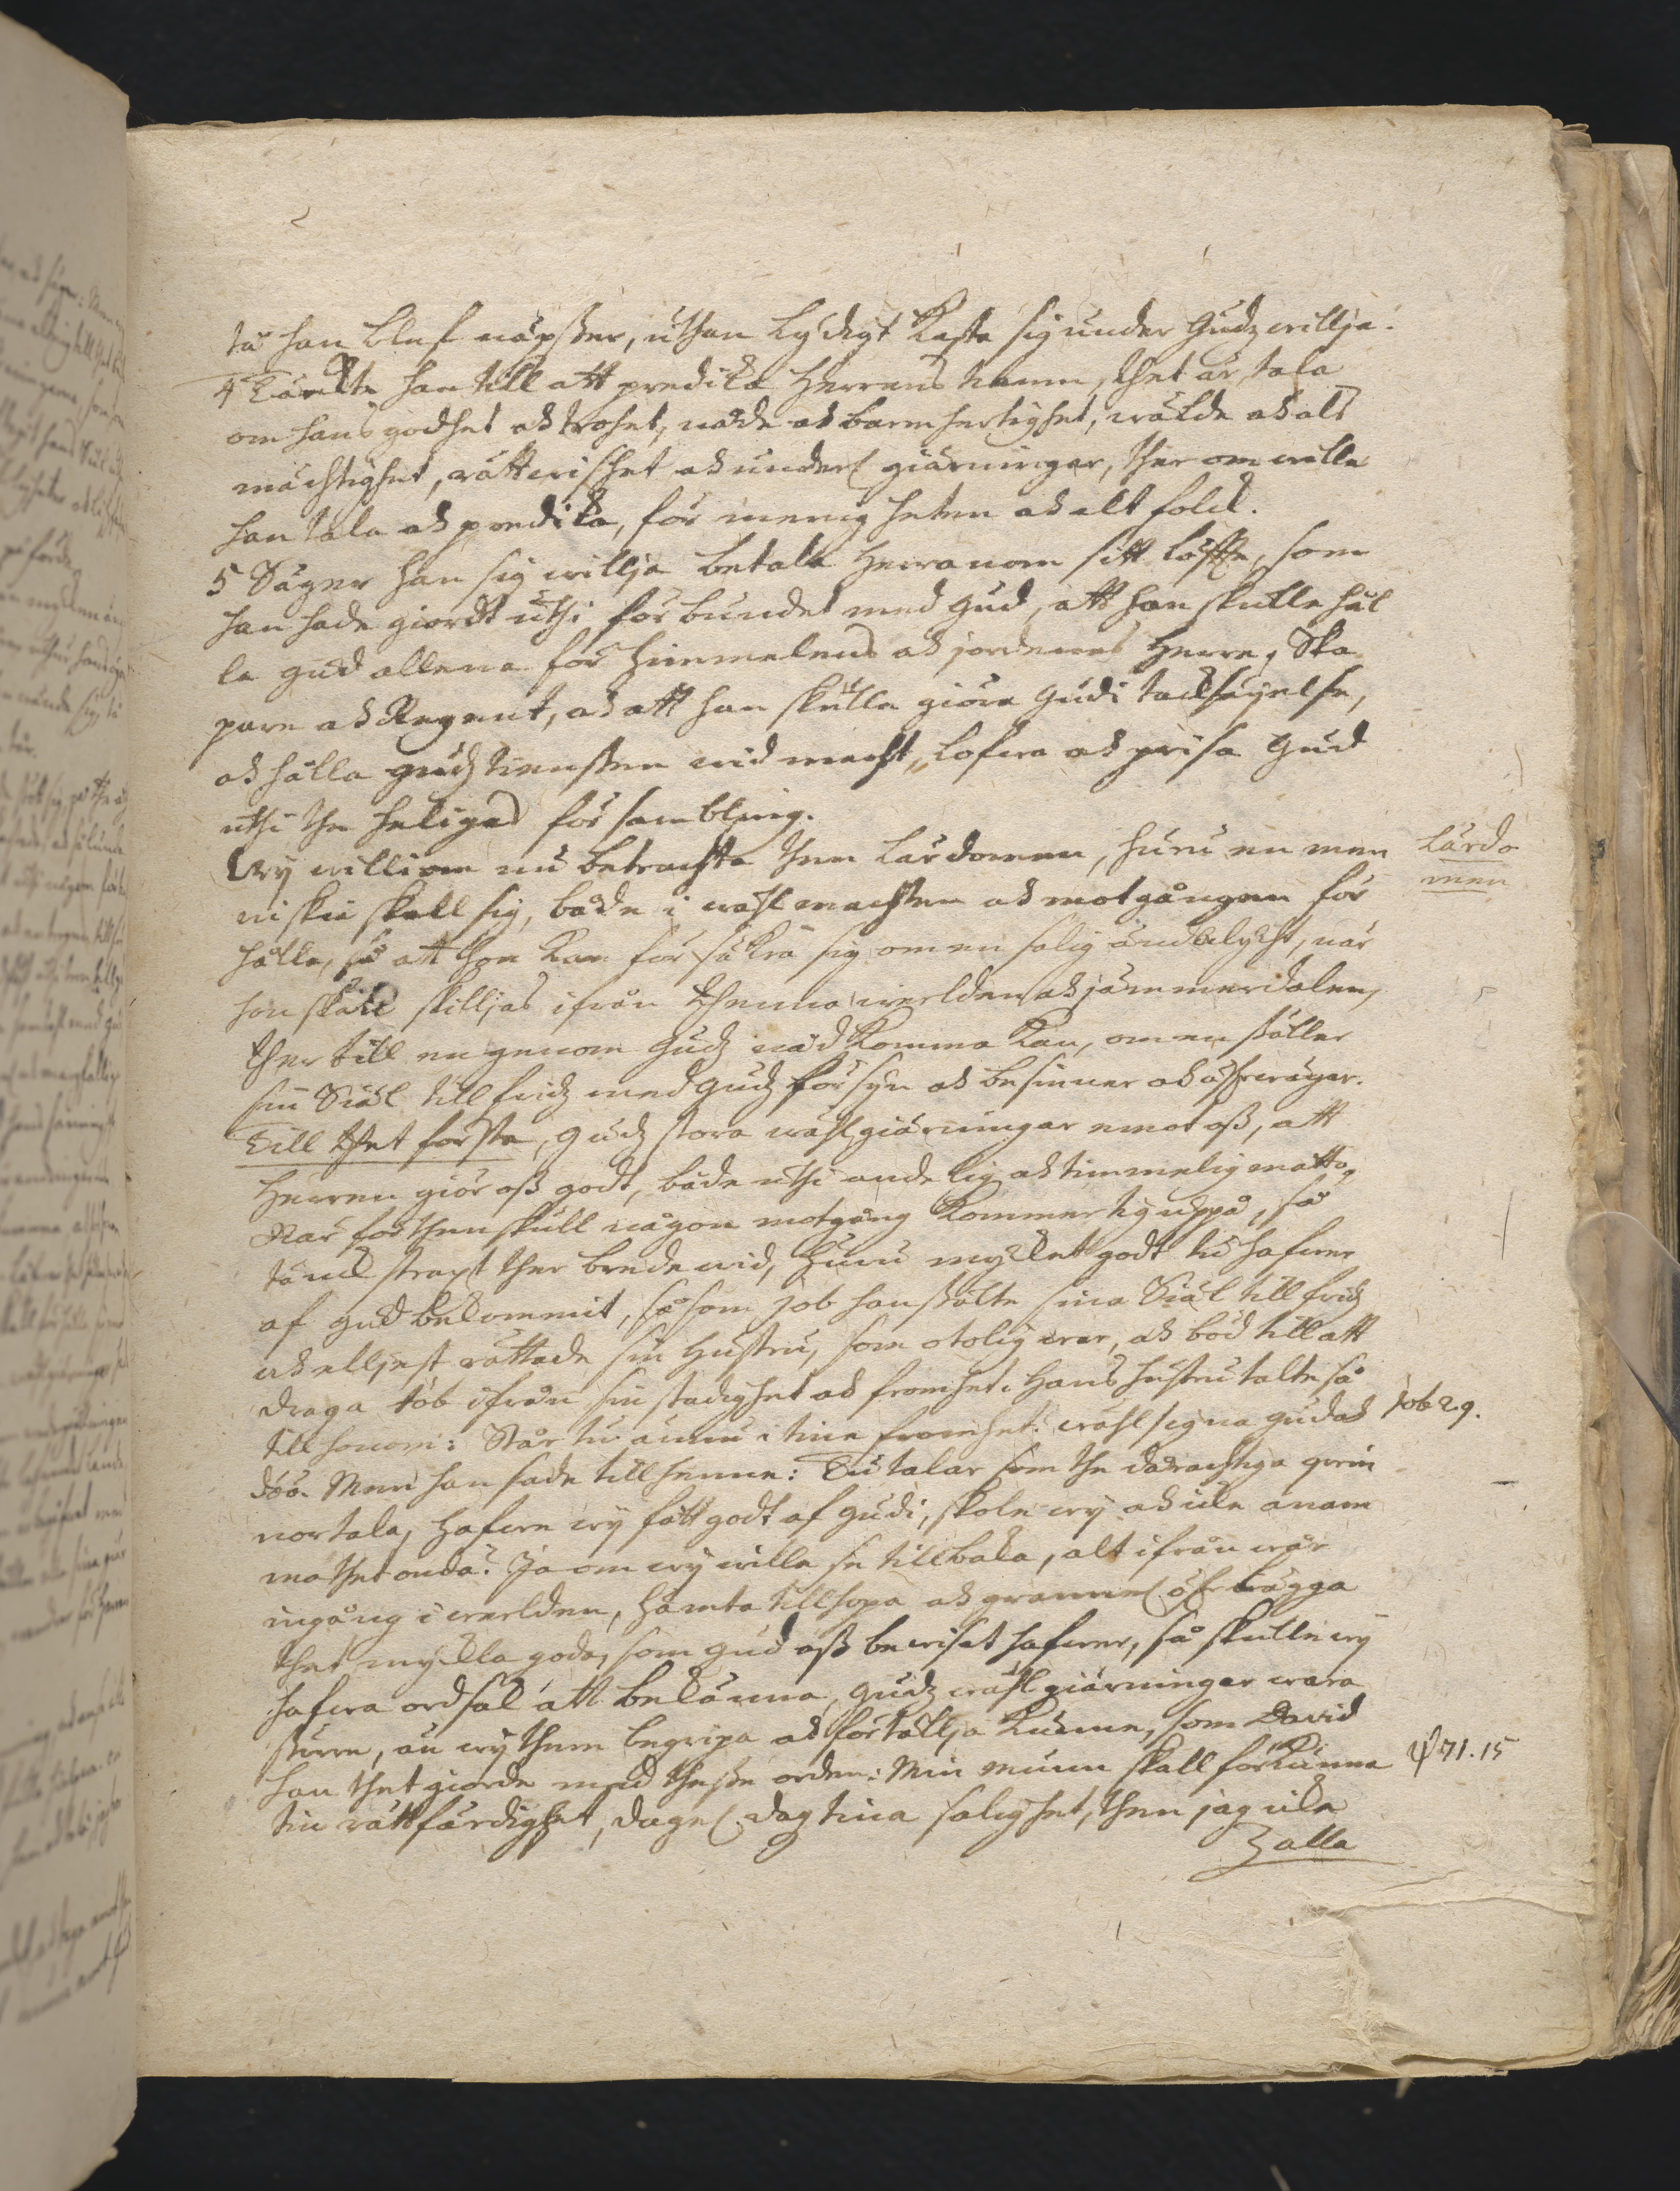 tå han blef näpster, uthan lydigt kasta sig under Gudz willja.
4 Tänkte han till att predika Herrens namn, thet är, tala
om hans godhet och trohet, nåde och barmhertighet, wälde och als
mächtighet, rättwishet och under giärningar, ther om wille
han tala och predika, för menigheten och alt folck.
5 Säger han sig willja betala Herranom sitt löffte, som
han hade giordt uthi förbundet med Gud, att han skulle hål
la Gud allena för himmelens och jordenes Herre, Ska
pare och Regent, och att han skulle giöra Gudi tacksäyelse,
och hålla gudztiensten wid macht, lofwa och prisa Gud
uthi the heligas försambling.
Wij williom nu betrachta then lärdomen, huru en men
niskia skall sig, både i wählmachten och motgången för
hålla, så att hon kan försäkra sig om en salig ändalycht, när
hon skall skilljas ifrån thenna werlden och jämmerdalen,
ther till en genom Gudz nåd komma kan, om en ställer
sin Siäl till fridz med Gudz försyn och besinner och öfwerwäger.
Till thet första, Gudz stora wählgiärningar emot oß, att
Herren giör oß godt, både uthi andelig och timmelig måtto,
När förthenskull någon motgång kommer tig uppå, så
tänck straxt ther brede wid, huru mycket godt tu hafwer
af Gud bekommit, såsom Job han stälte sina Siäl till fridz
och elljest rättade sin hustru, som otolig war, och böd till att
draga Job ifrån sin stadighet och fromhet. Hans hustru talte så
till honom: Står tu ännu i tine fromhet? wählsigna Gud och
döö. Men han sade till henne: Tu talar som the dårachtiga qwin
nor tala, hafwe wij fått godt af Gudi, skole wij och icke anam
ma thet onda? Ja om wij wille se tillbaka, alt ifrån wår
ingång i werlden, hämta tillhopa och granne öfwerwägga
thet myckla goda, som Gud oß bewisat hafwer, så skulle wij
hafwa ordsak att bekänna, Gudz wählgiärningar wara
större, än wij them begripa och förtällja kunne, som David
han thet giorde med theße orden: Min munn skall förkunna
tin rättfärdighet, dagel. dag tina salighet, then jag icke
alla
Lärdo
men
Job 2.9.
Ψ 71.15